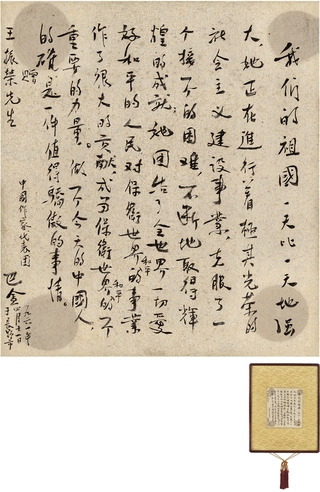 我们的祖國一天比一天地强
大,她正在進行着極其光荣的
社会主义建设事業,克服了一
个接一个的困难,不断地取得輝
煌的成就;她团结了全世界一切爱
好和平的人民对保衛世界和平的事業
作了很大的贡献,成为保衛世界和平的一个
重要的力量。做一个今天的中國人,
的確是一件值得驕傲的事情。
赠
王振荣先生
中国作家代表团
巴金
一九六一年
四月十一日